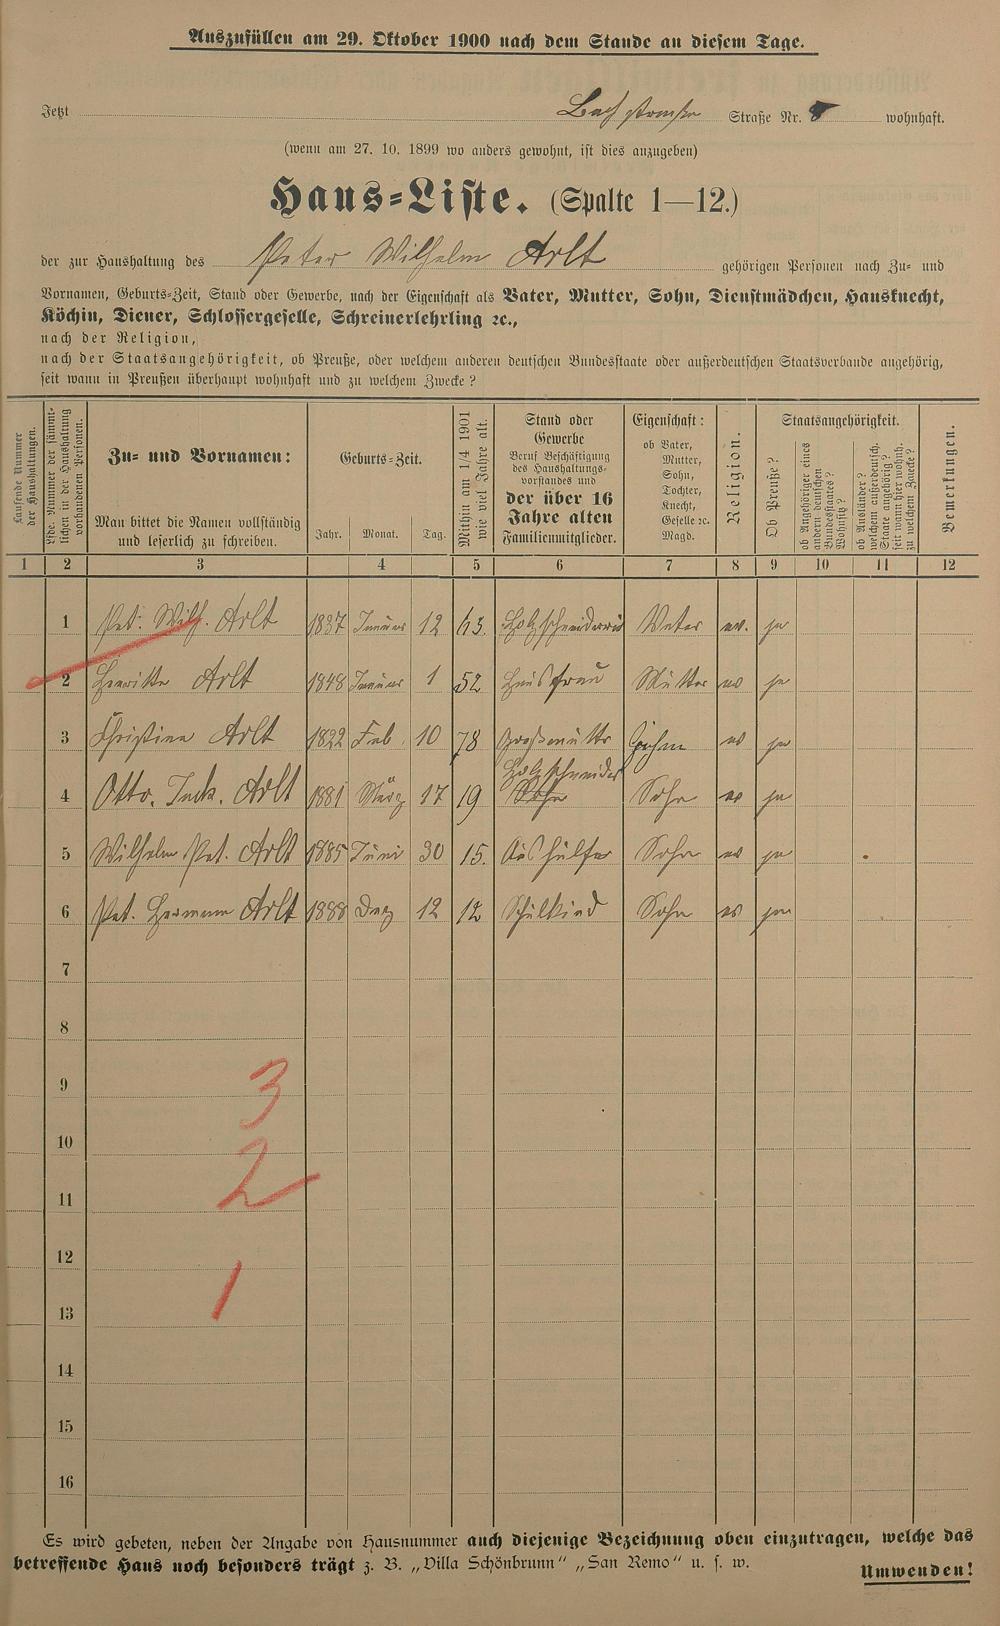 Auszufüllen am 29. Oktober 1900 nach dem Stande an diesem Tage.
Jetzt Bachstrasse Straße Nr. 8 wohnhaft.
(wenn am 27. 10. 1899 wo anders gewohnt, ist dies anzugeben)
Haus-Liste. (Spalte 1—12.)
der zur Haushaltung des Peter Wilhelm Arlt gehörigen Personen nach Zu- und
Vornamen, Geburts-Zeit, Stand oder Gewerbe, nach der Eigenschaft als Vater, Mutter, Sohn, Dienstmädchen, Hausknecht,
Köchin, Diener, Schlossergeselle, Schreinerlehrling ꝛc.,
nach der Religion,
nach der Staatsangehörigkeit, ob Preuße, oder welchem anderen deutschen Bundesstaate oder außerdeutschen Staatsverbande angehörig,
seit wann in Preußen überhaupt wohnhaft und zu welchem Zwecke?
Laufende Nummer
der Haushaltungen.
Lfde. Nummer der sämmt-
lichen in der Haushaltung
vorhandenen Personen.
Zu- und Vornamen:
Man bittet die Namen vollständig
und leserlich zu schreiben.
Geburts-Zeit.
Jahr. Monat. Tag.
Mithin am 1/4 1901
wie viel Jahre alt.
Stand oder
Gewerbe
Beruf Beschäftigung
des Haushaltungs-
vorstandes und
der über 16
Jahre alten
Familienmitglieder.
Eigenschaft:
ob Vater,
Mutter,
Sohn,
Tochter,
Knecht,
Geselle ꝛc.
Magd.
Religion.
Staatsangehörigkeit.
Ob Preuße?
ob Angehöriger eines
andern deutschen
Bundesstaates?
Wohnsitz?
ob Ausländer?
welchem außerdeutsch.
Staate angehörig?
seit wann hier wohnh.
zu welchem Zwecke?
Bemerkungen.
1 2 3 4 5 6 7 8 9 10 11 12
1 Pet. Wilh. Arlt 1837 Januar 12 63. Vater ev. ja
2 Henritte Arlt 1848 Januar 1 52 Hausfrau Mutter ev ja
3 Christina Arlt 1822 Feb. 10 78 Grosmutter ev ja
Holzschneider
4 Otto. Arlt 1881 März 17 19 Sohn Sohn ev ja
5 Wilhelm Pet. Arlt 1885 Juni 30 15. Aushülfer Sohn ev ja
6 Pet. Hermann Arlt 1888 Dez 12 12 Schulkind Sohn ev ja
7
8
9
3
10
2
11
12
1
13
14
15
16
Es wird gebeten, neben der Angabe von Hausnummer auch diejenige Bezeichnung oben einzutragen, welche das
betreffende Haus noch besonders trägt z. B. „Villa Schönbrunn“ „San Remo“ u. s. w.
Umwenden!